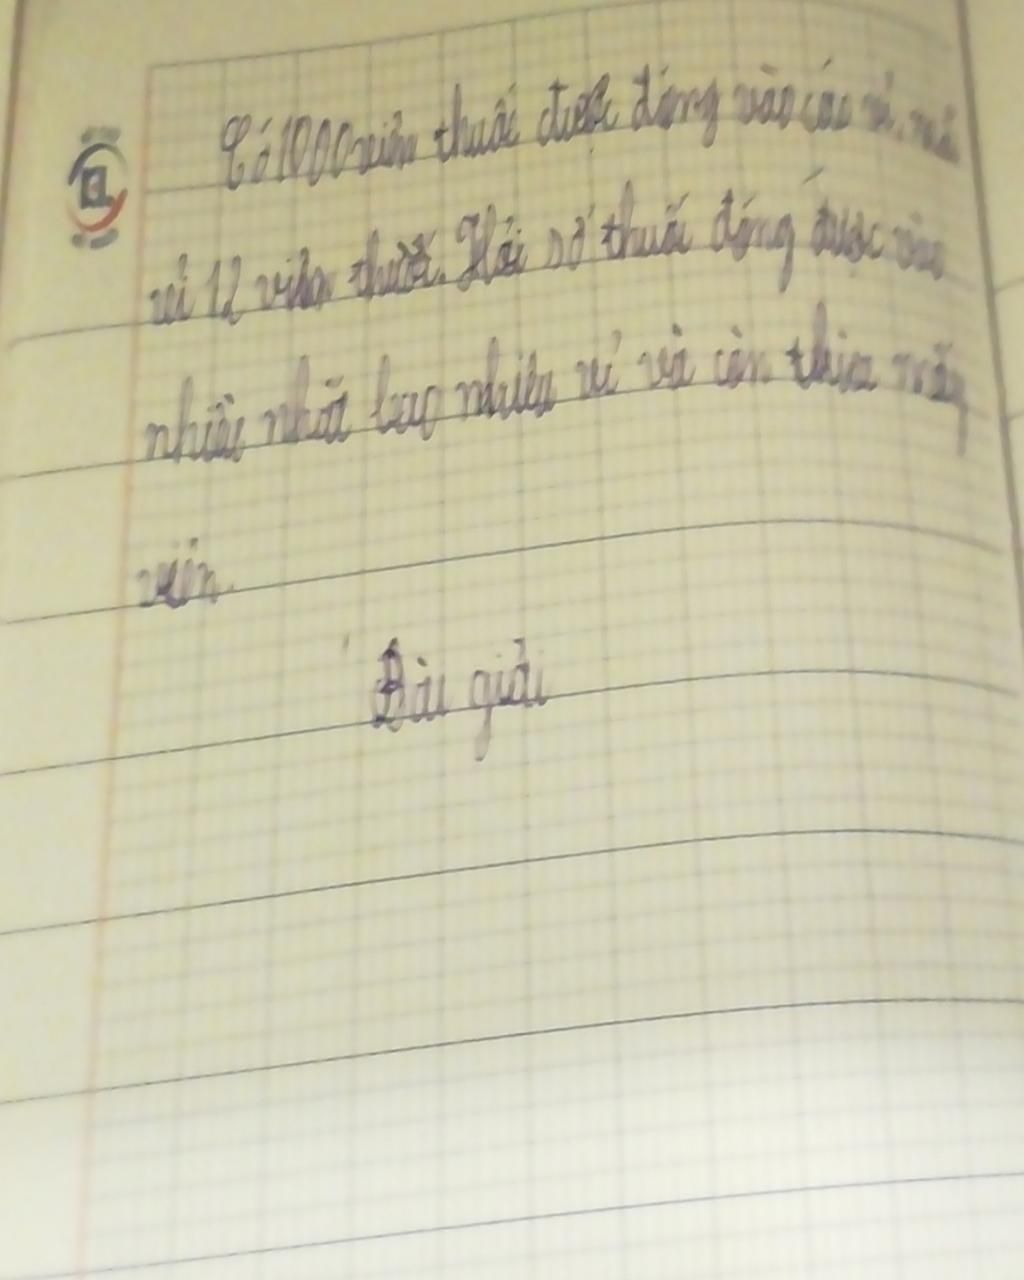 Có 1000 viên thuốc được đóng vào các vỉ, mỗi
vỉ 12 viên thuốc. Hỏi số thuốc đóng được vào
nhiều nhất bao nhiêu vỉ và còn thừa mấy
viên.
Bài giải